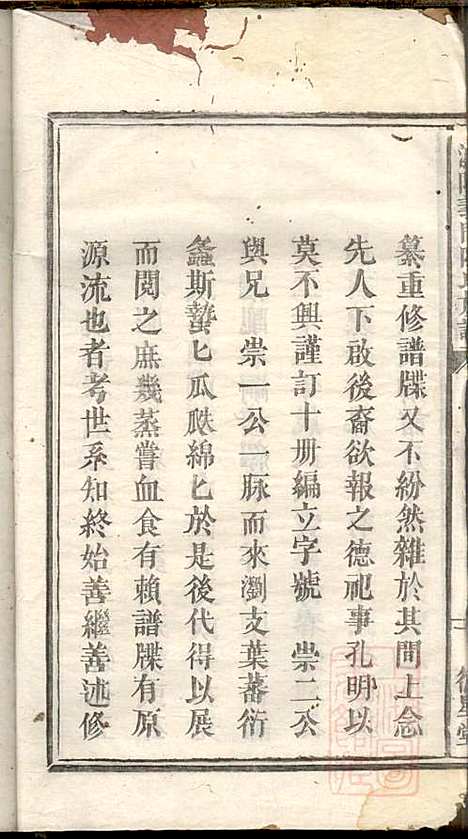 纂重修譜牒又不紛然雜於其間上念
先人下啟後裔欲報之德祀事孔明以
莫不興謹訂十冊編立字號 崇二公
與兄 崇一公一脉而來瀏支葉蕃衍
螽斯蟄匕瓜瓞綿匕於是後代得以展
而閱之庶幾蒸嘗血食有賴譜牒有原
源流也者考世系知終始善繼善述修